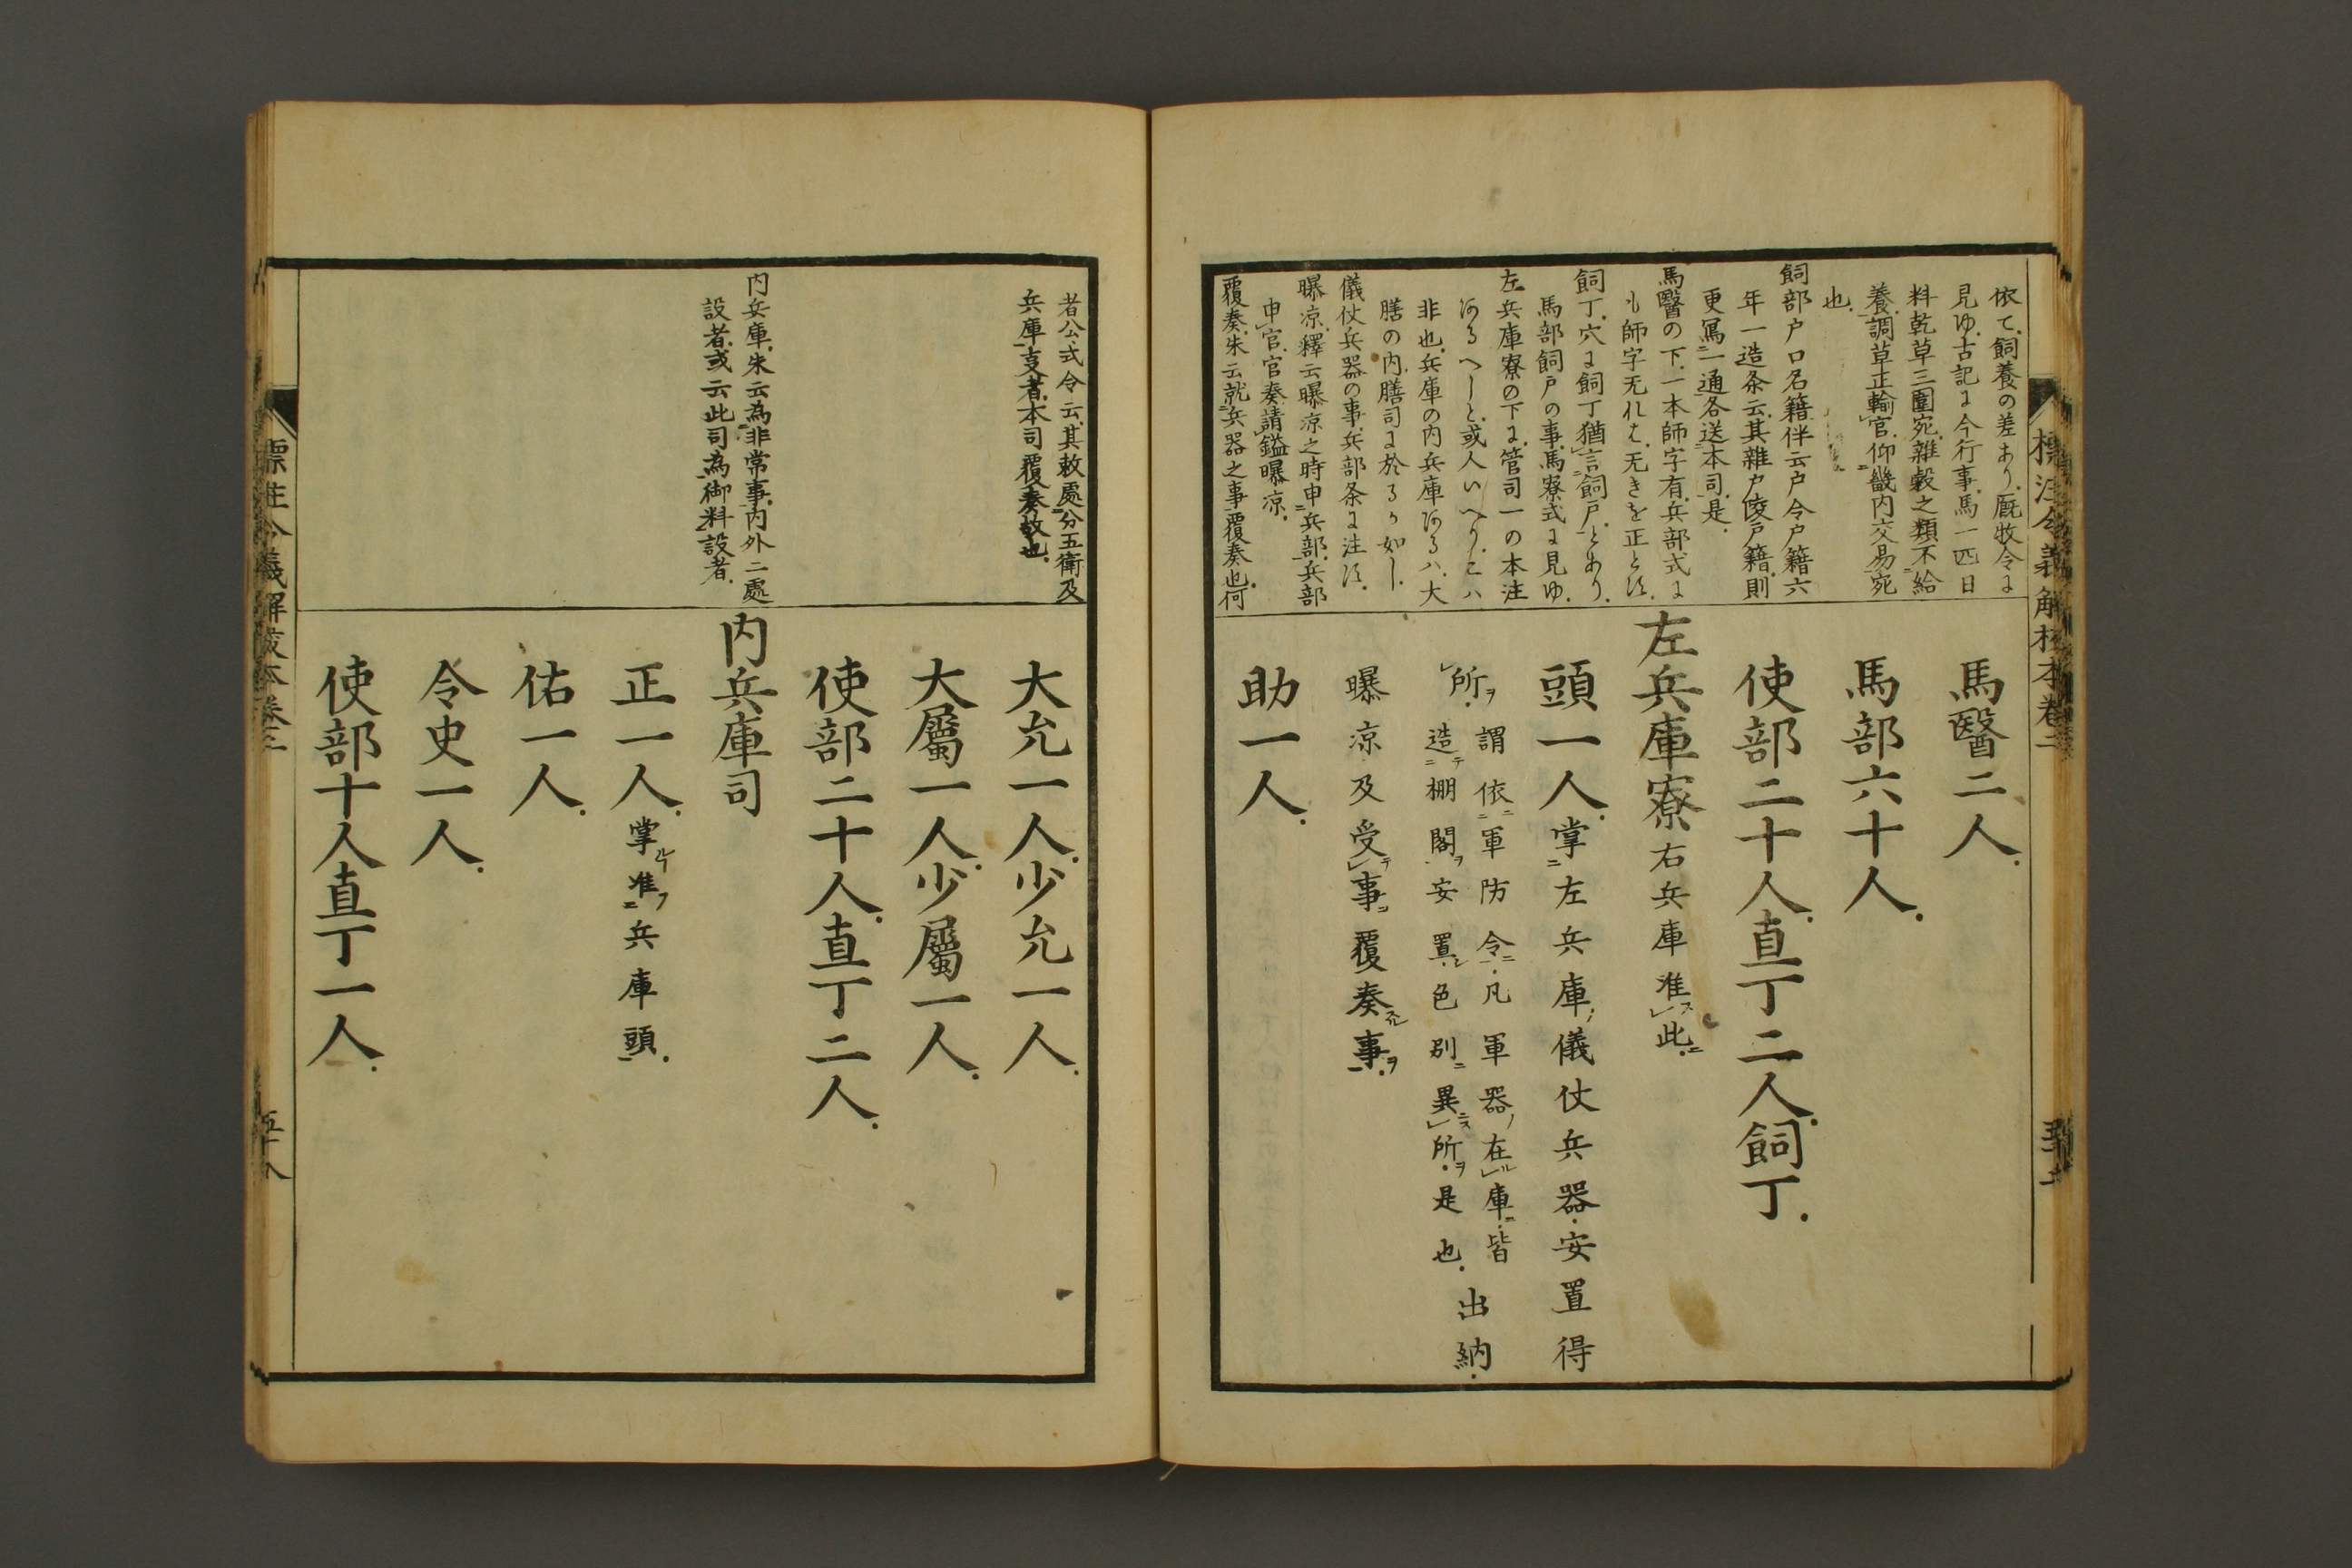 依て、飼養の差あり、厩牧令に
見ゆ、古記に今行事、馬一匹日
料乾草三圍、宛雜穀之類不給
養、調草正輸官、仰畿内交易宛
也、
飼部戸口名籍伴云戸令戸籍六
年一造条云、其雜戸陵戸籍、則
更寫一通各送本司、是、
馬醫の下、一本師字有、兵部式に
も師字无れは、无きを正とす、
飼丁、穴に飼丁猶言飼戸、とあり、
馬部飼戸の事、馬寮式に見ゆ、
左兵庫寮の下に、管司一の本注
あるへしと、或人いへり、こハ
非也、兵庫の内兵庫あるハ、大
膳の内膳司に於るか如し、
儀仗兵器の事、兵部条に注す、
曝凉、釋云曝凉之時申兵部、兵部
申官、官奏請鎰曝凉、
覆奏、朱云就兵器之事覆奏也、何
馬醫二人、
馬部六十人、
使部二十人、直丁二人、飼丁、
左兵庫寮 右兵庫准ス此ニ、
頭一人、掌左兵庫ノ儀仗兵器、安置得
所ヲ、謂依軍防令ニ、凡軍器ノ在ル庫ニ、皆
造テ棚閣ヲ安置シ、色別ニ異ニス所ヲ、是也、出納、
曝凉及受テ事ヲ覆奏スル事ヲ、
助一人、
標注令義解校本卷二
者公式令云、其敕處分五衛及
兵庫支者、本司覆奏故也、
内兵庫、朱云為非常事、内外二處
設者、或云此司為御料設者、
大允一人、少允一人、
大屬一人、少屬一人、
使部二十人、直丁二人、
内兵庫司
正一人、掌ルヿ准フ兵庫頭、
佑一人、
令史一人、
使部十人直丁一人、
標注令義解校本卷三
五十八